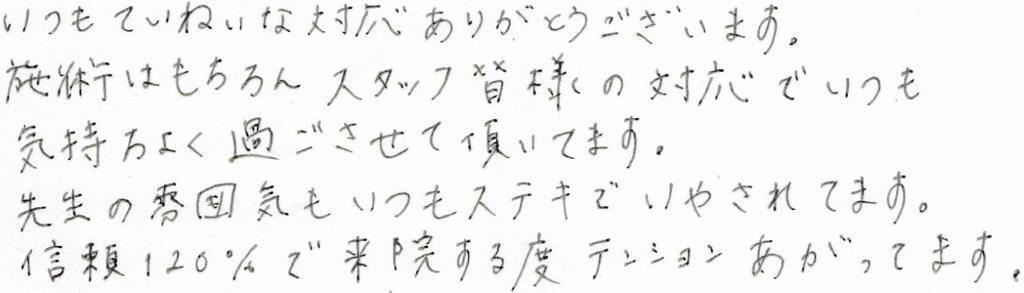 いつもていねいな対応ありがとうございます。
施術はもちろんスタッフ皆様の対応でいつも
気持ちよく過ごさせて頂いてます。
先生の雰囲気もいつもステキでいやされてます。
信頼120%で来院する度テンションあがってます。